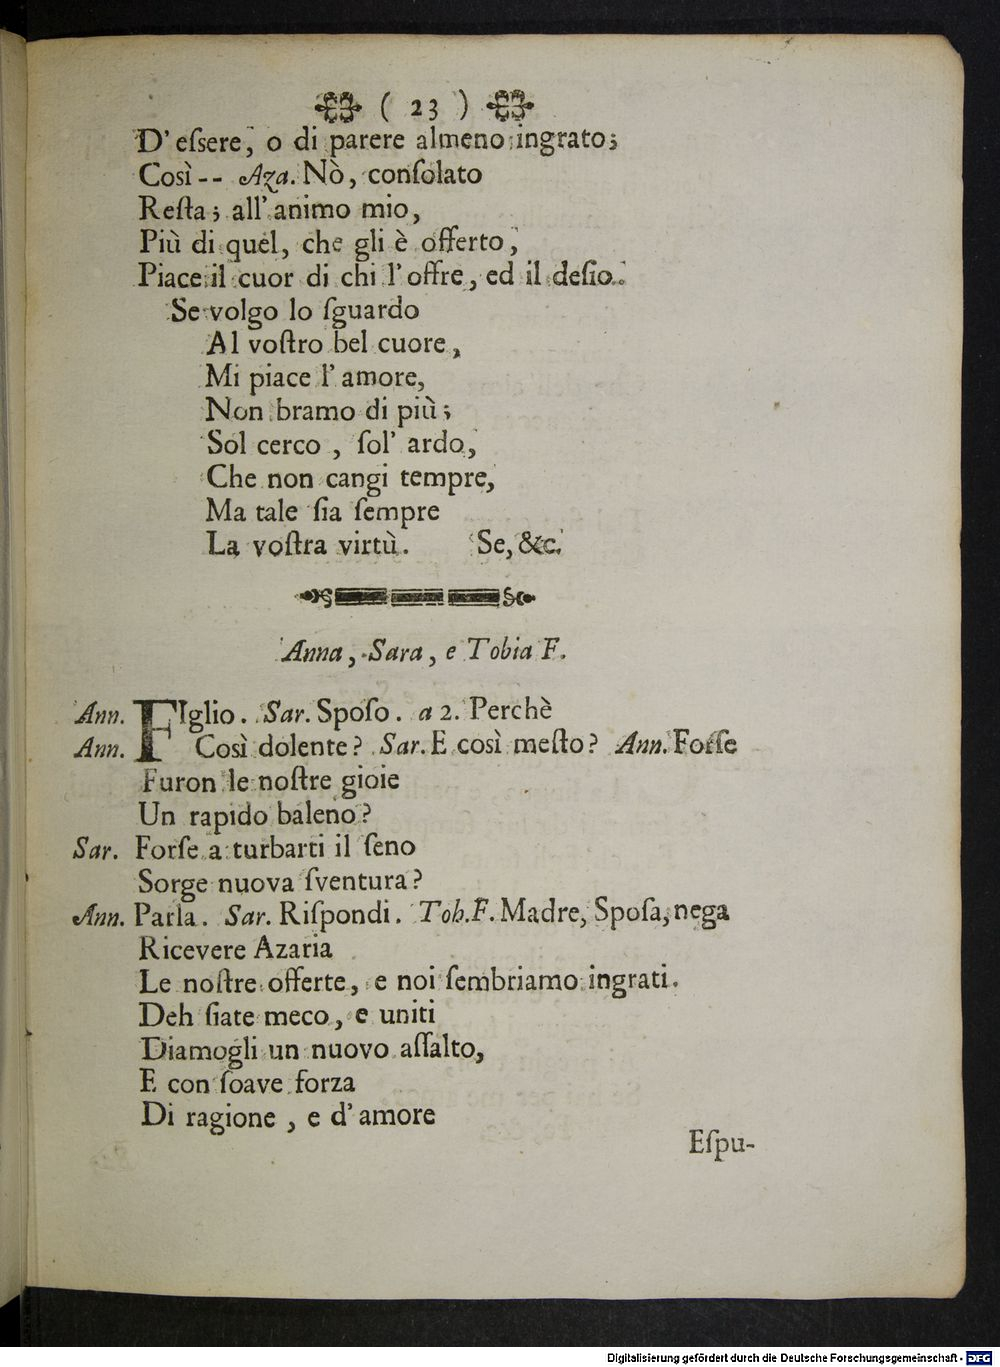 ( 23 )
D' eſsere, o di parere almeno ingrato;
Così -- Aza. Nò, conſolato
Reſta; all' animo mio,
Più di quel, che gli è offerto,
Piace il cuor di chi l' offre, ed il deſio.
Se volgo lo ſguardo
Al voſtro bel cuore,
Mi piace l' amore,
Non bramo di più;
Sol cerco, ſol' ardo,
Che non cangi tempre,
Ma tale ſia ſempre
La voſtra virtù. Se, &c.
Anna, Sara, e Tobia F.
Ann. FIglio. Sar. Spoſo. a 2. Perchè
Ann. Così dolente? Sar. E così meſto? Ann. Forſe
Furon le noſtre gioie
Un rapido baleno?
Sar. Forſe a turbarti il ſeno
Sorge nuova ſventura?
Ann. Parla. Sar. Riſpondi. Tob. F. Madre, Spoſa, nega
Ricevere Azaria
Le noſtre offerte, e noi ſembriamo ingrati.
Deh ſiate meco, e uniti
Diamogli un nuovo aſſalto,
E con ſoave forza
Di ragione, e d' amore
Eſpu-
Digitalisierung gefördert durch die Deutsche Forschungsgemeinschaft - DFG